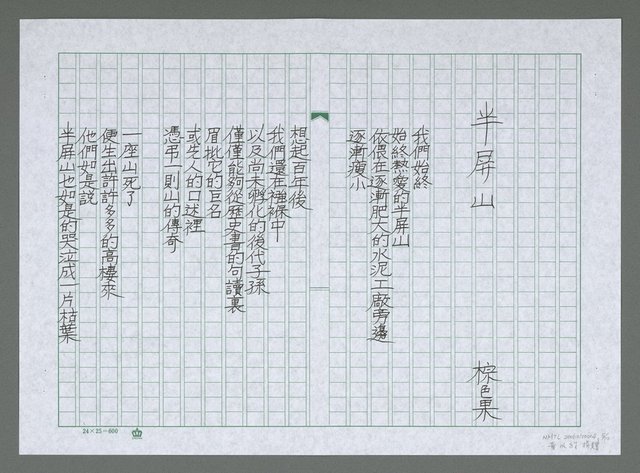 半屏山
棕色果
我們始終
始終熱愛的半屏山
依偎在逐漸肥大的水泥工廠旁邊
逐漸瘦小
想起百年後
我們還在襁褓中
以及尚未孵化的後代子孫
僅僅能夠從歷史書的句讀裏
眉批它的巨名
或先人的口述裡
憑弔一則山的傳奇
一座山死了
便生出許許多多的高樓來
他們如是說
半屏山也如是的哭泣成一片枯葉
24×25=600